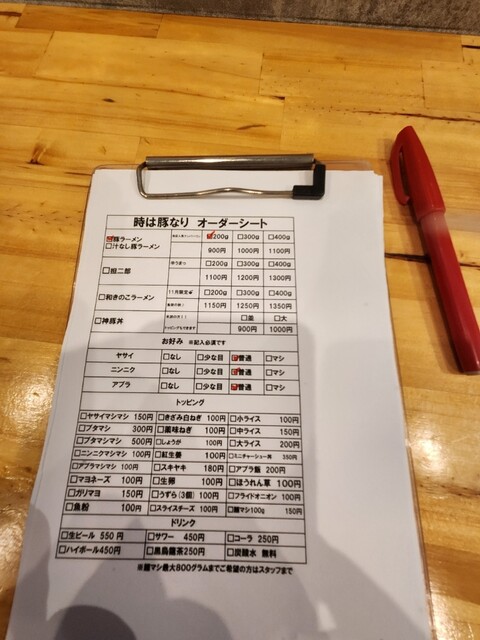 時は豚なり オーダーシート
☑豚ラーメン ☑200g □300g □400g
□汁なし豚ラーメン 900円 1000円 1100円
□担二郎 □200g □300g □400g
1100円 1200円 1300円
□和きのこラーメン 11月限定 □200g □300g □400g
1150円 1250円 1350円
□神豚丼 □並 □大
900円 1000円
お好み ※記入必須です
ヤサイ □なし □少な目 ☑普通 □マシ
ニンニク □なし □少な目 ☑普通 □マシ
アブラ □なし □少な目 ☑普通 □マシ
トッピング
□ヤサイマシマシ 150円 □きざみ白ねぎ 100円 □小ライス 100円
□ブタマシ 300円 □薬味ねぎ 100円 □中ライス 150円
□ブタマシマシ 500円 □しょうが 100円 □大ライス 200円
□ニンニクマシマシ 100円 □紅生姜 100円 □ミニチャーシュー丼 350円
□アブラマシマシ 100円 □スキヤキ 180円 □アブラ飯 200円
□マヨネーズ 100円 □生卵 100円 □ほうれん草 100円
□ガリマヨ 150円 □うずら(3個) 100円 □フライドオニオン 100円
□魚粉 100円 □スライスチーズ 100円 □麺マシ100g 150円
ドリンク
□生ビール 550円 □サワー 450円 □コーラ 250円
□ハイボール450円 □黒烏龍茶250円 □炭酸水 無料
※麺マシ最大800グラムまでご希望の方はスタッフまで